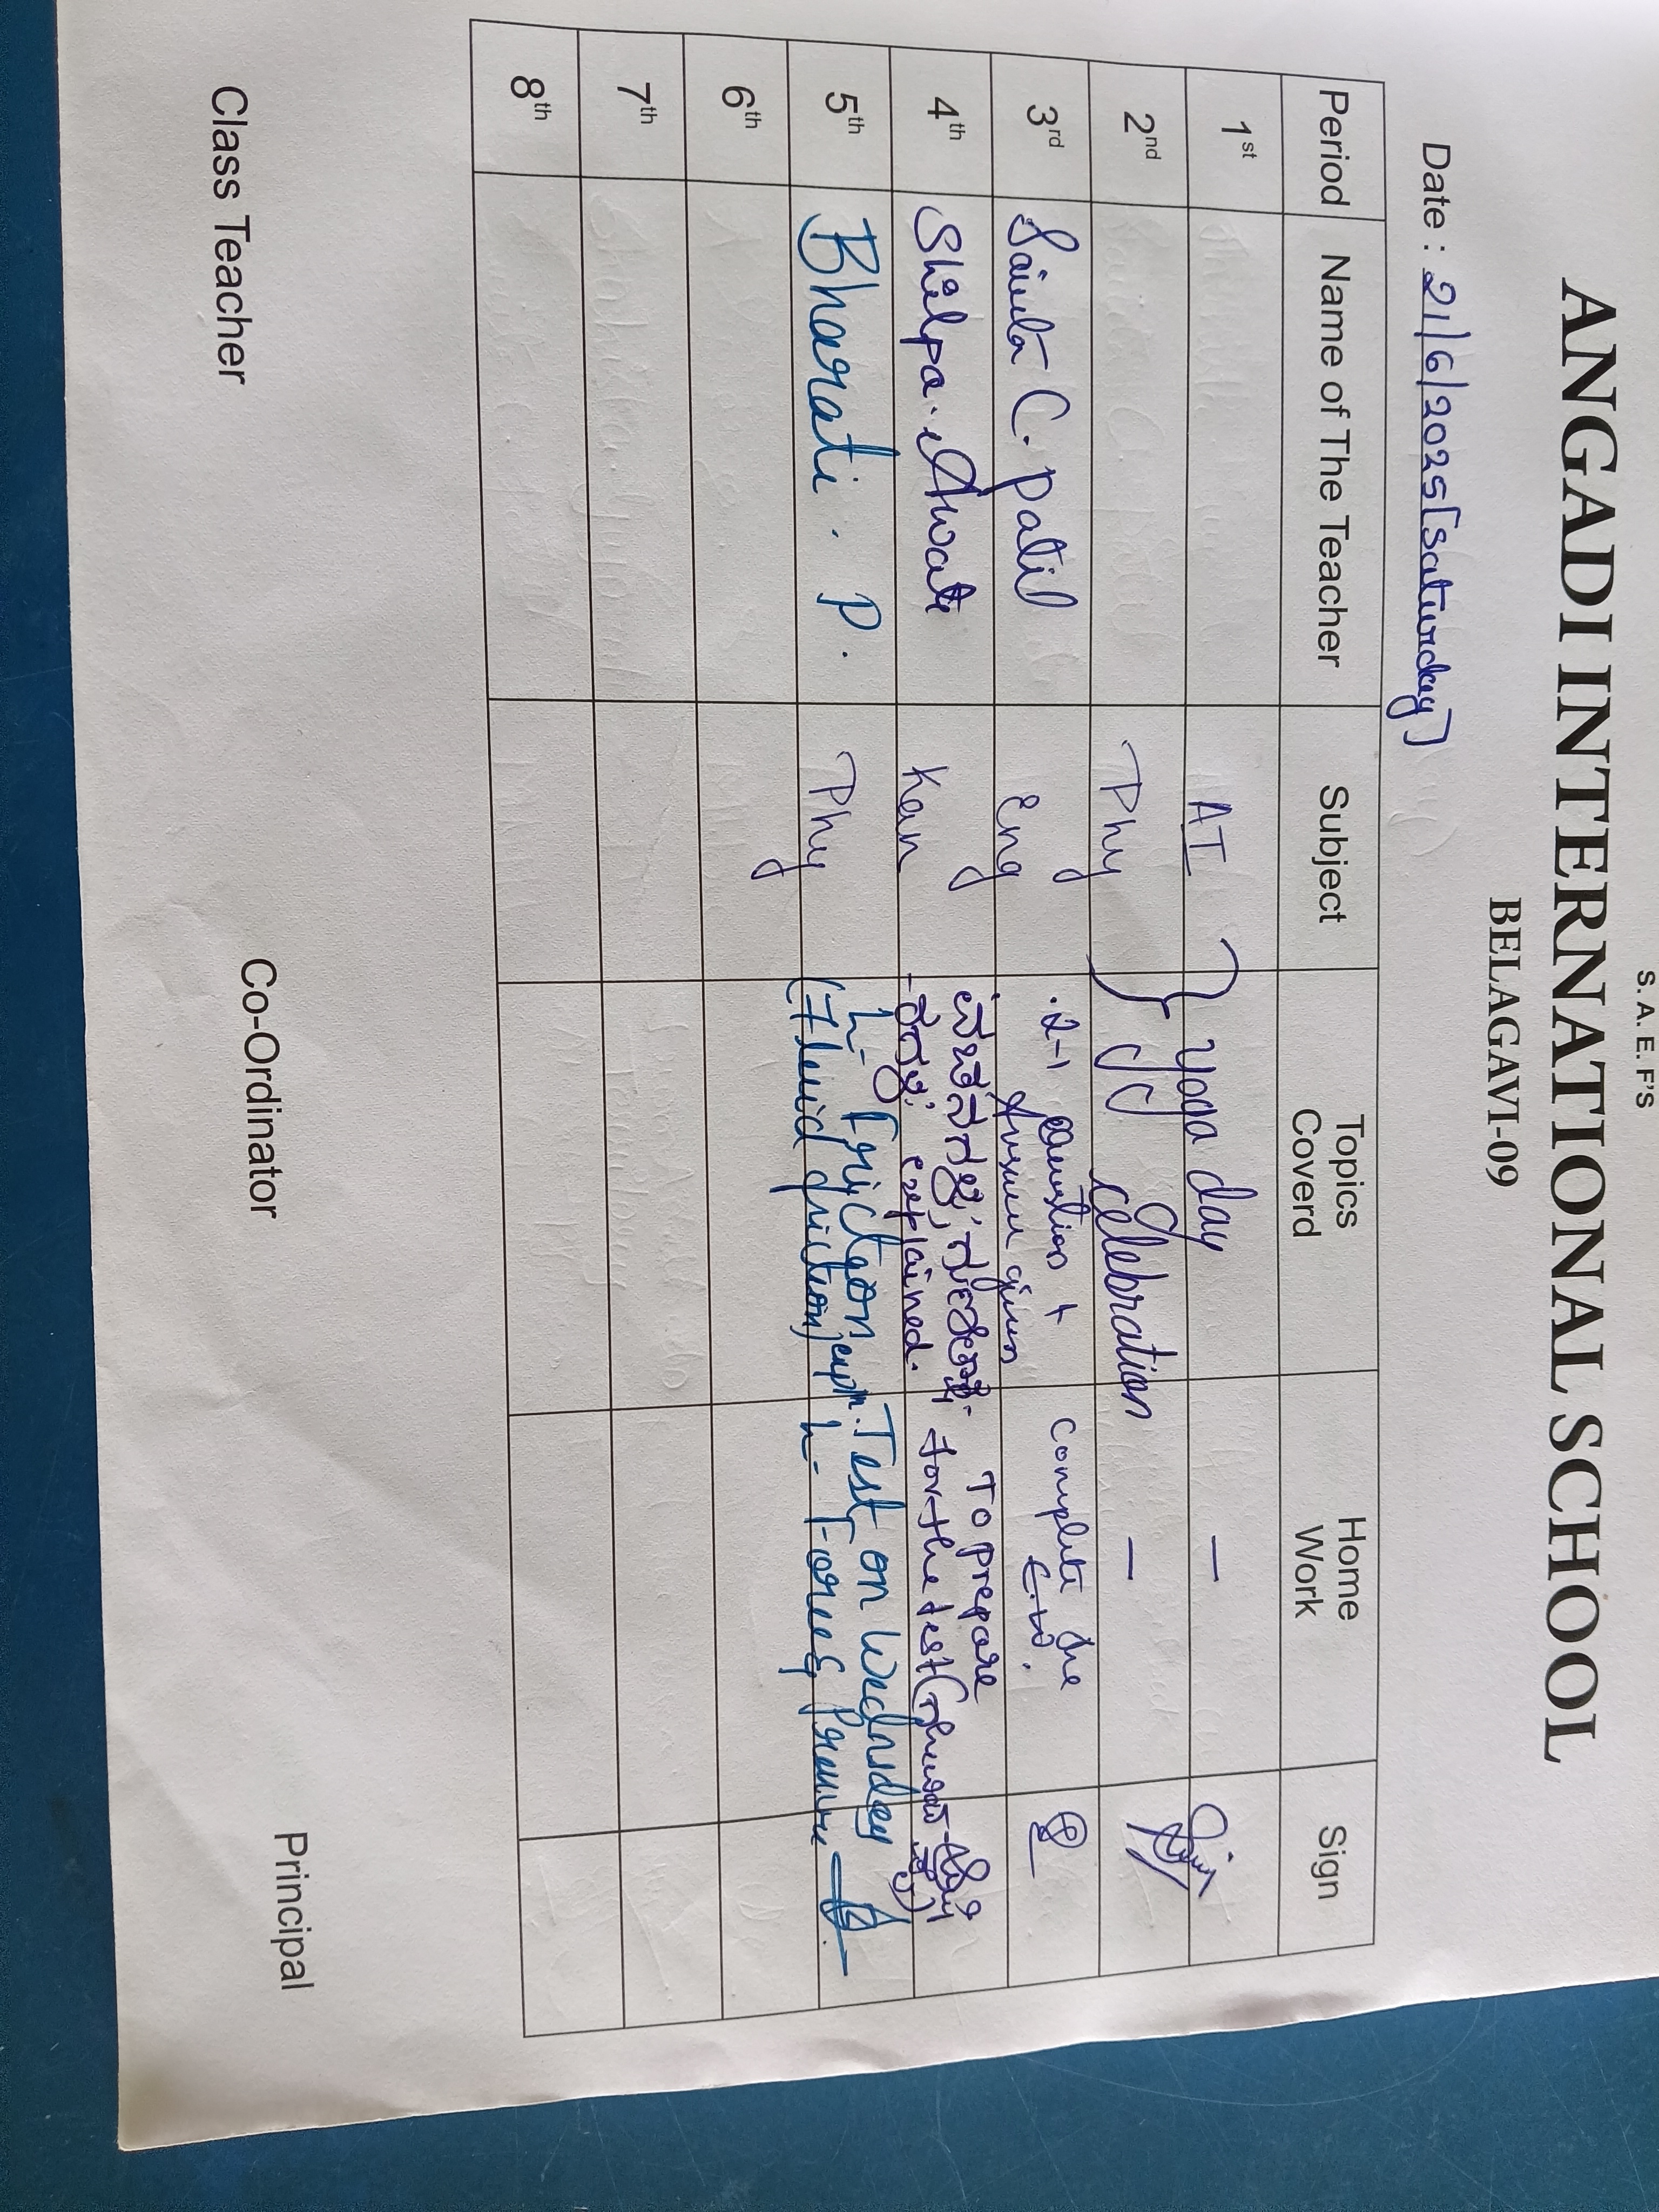 S. A. E. F'S
ANGADI INTERNATIONAL SCHOOL
BELAGAVI-09
Date : 21/6/2025 [Saturday]
Period Name of The Teacher Subject Topics Coverd Home Work Sign
1st AI } yoga day —
2nd Phy celebration —
3rd C. Patil Eng 2-1 Question + Answer given Complete the C.W.
4th Shilpa. Awati Kan explained. To prepare for the test
5th Bharati . P. Phy L- Friction (Fluid friction) expln. Test on Wednesday L- Force & Pressure
6th
7th
8th
Class Teacher Co-Ordinator Principal